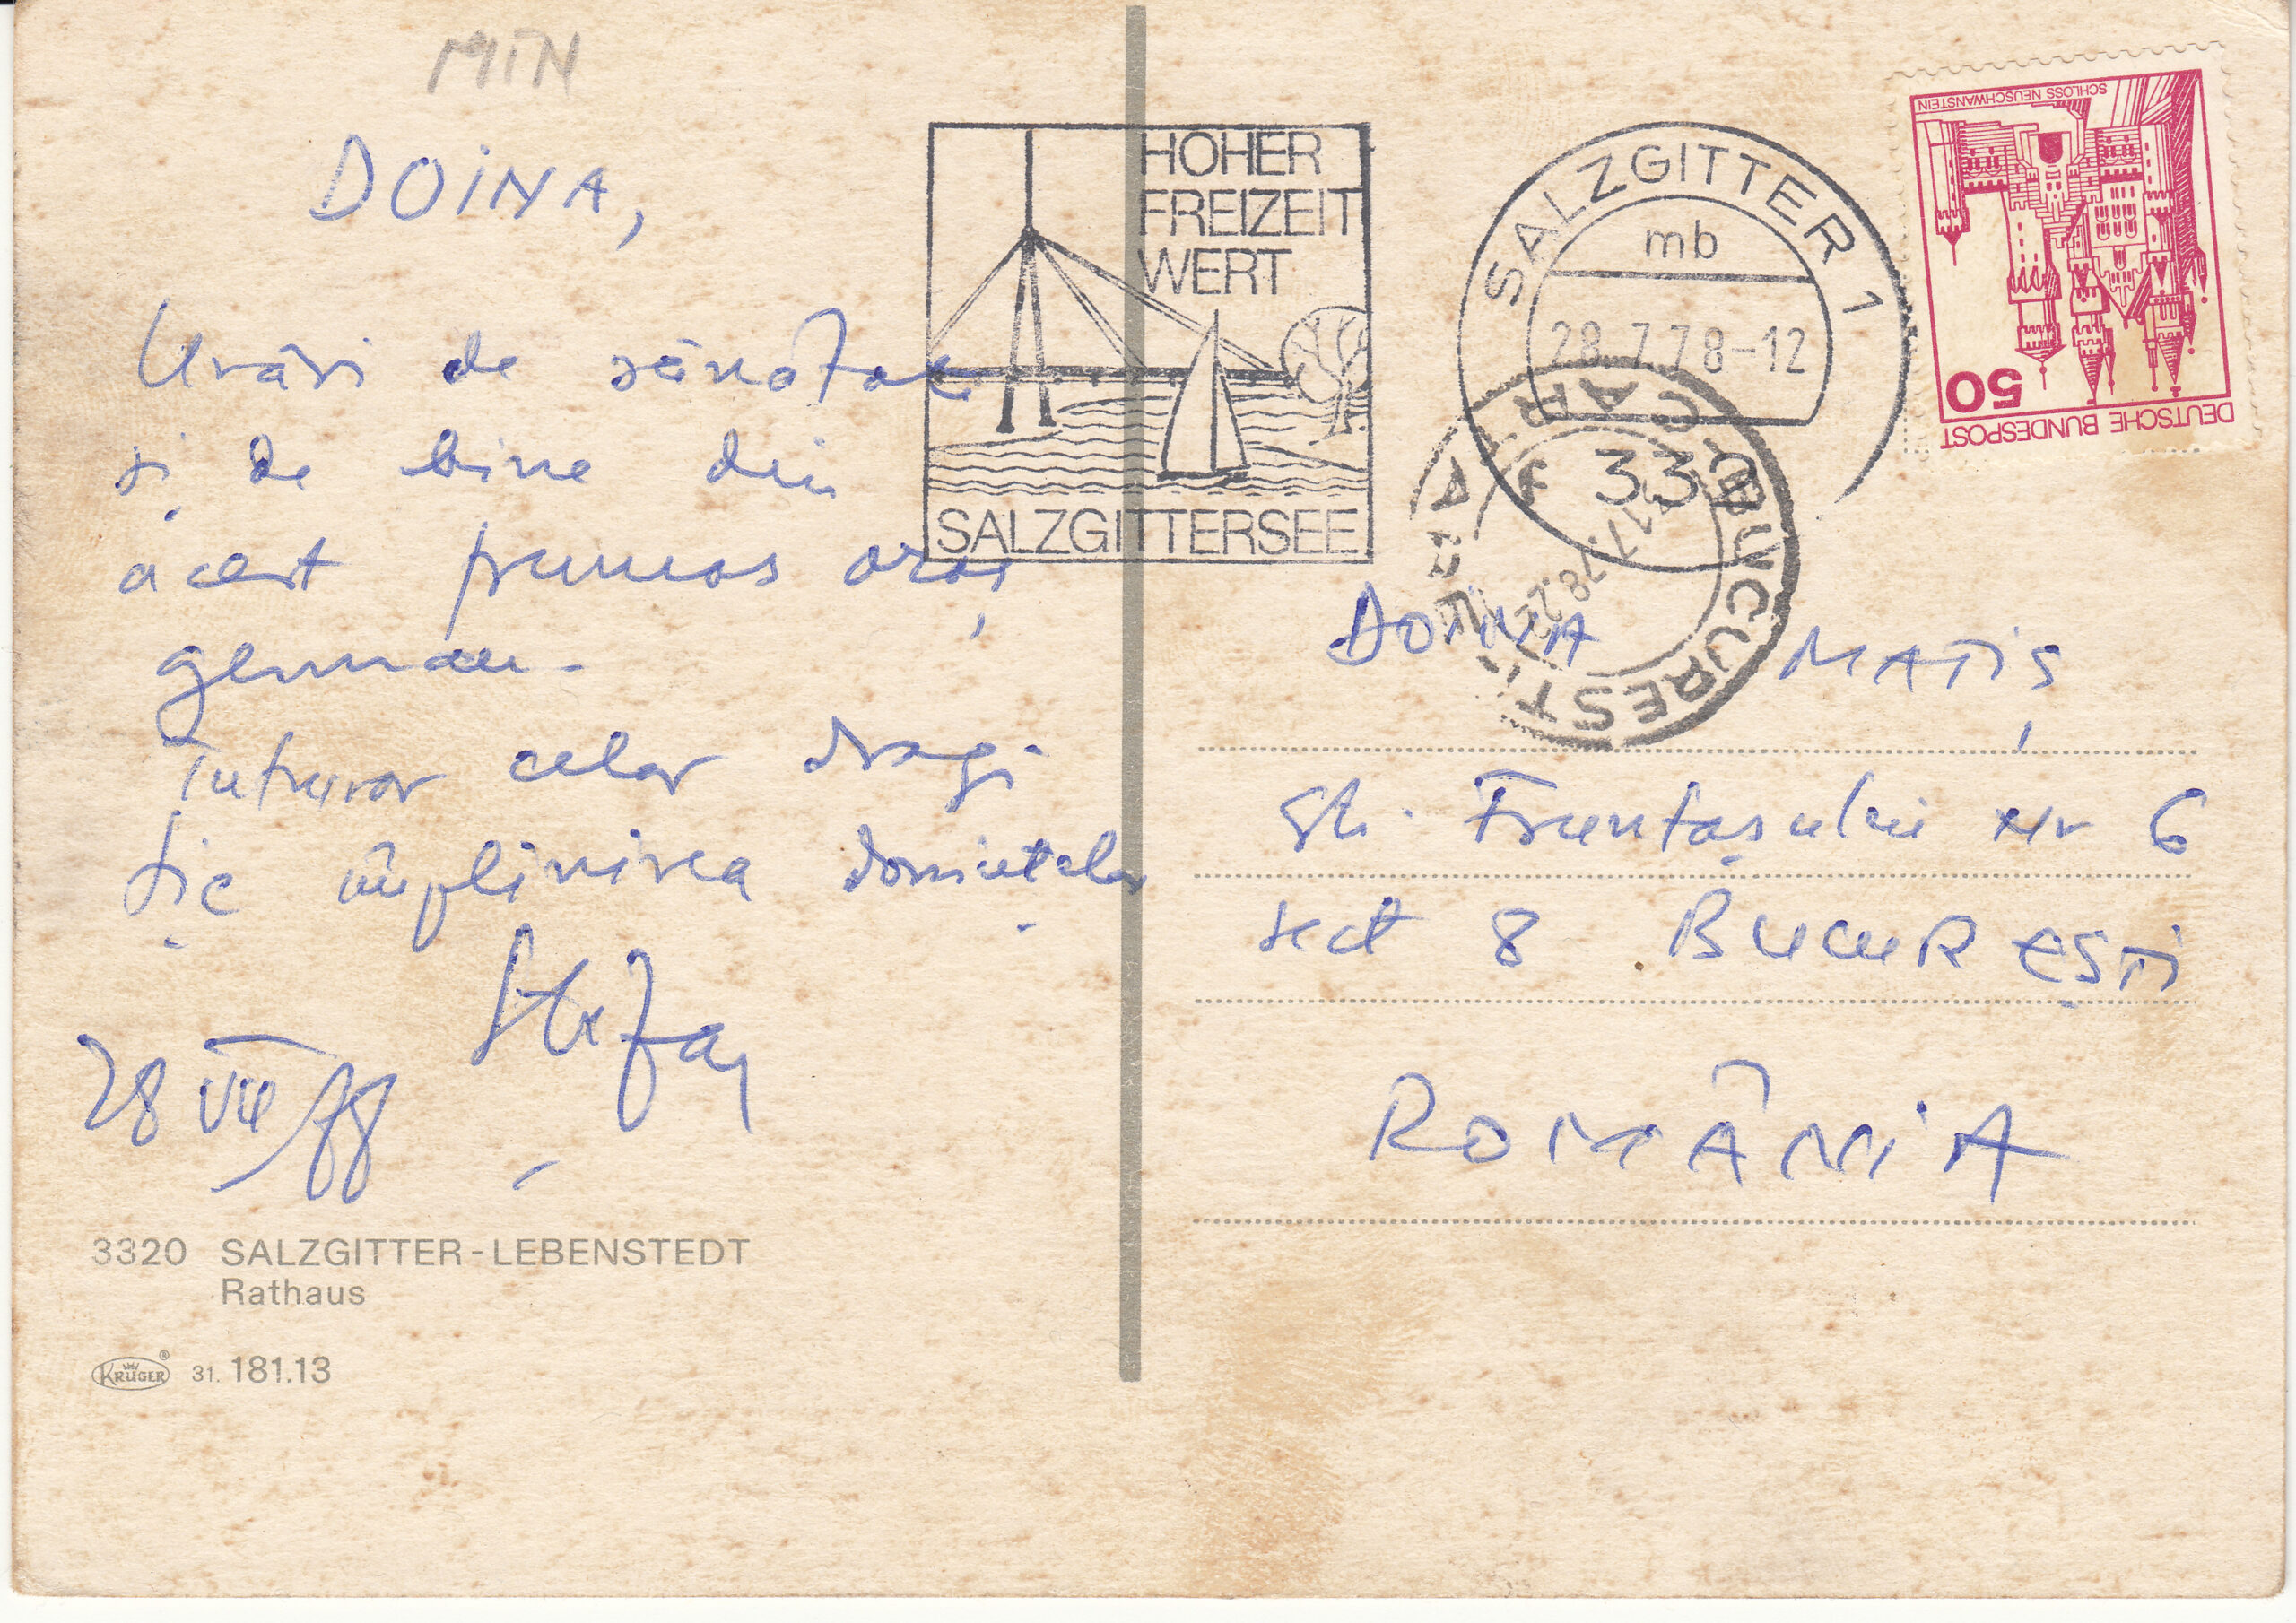 MIN
DOINA,
Urări de sănătate
și de bine din
acest frumos oraș
german.
Tuturor celor dragi
ție împlinirea dorințelor
Ștefan
28 VII 78
3320 SALZGITTER-LEBENSTEDT
Rathaus
KRÜGER® 31. 181.13
HOHER
FREIZEIT
WERT
SALZGITTERSEE
SALZGITTER 1
mb
28.7.78-12
332
CARTARE
BUCUREȘTI
SCHLOSS NEUSCHWANSTEIN
50
DEUTSCHE BUNDESPOST
DOINA MATIȘ
Str. Fruntașului nr 6
sect 8 BUCUREȘTI
ROMÂNIA